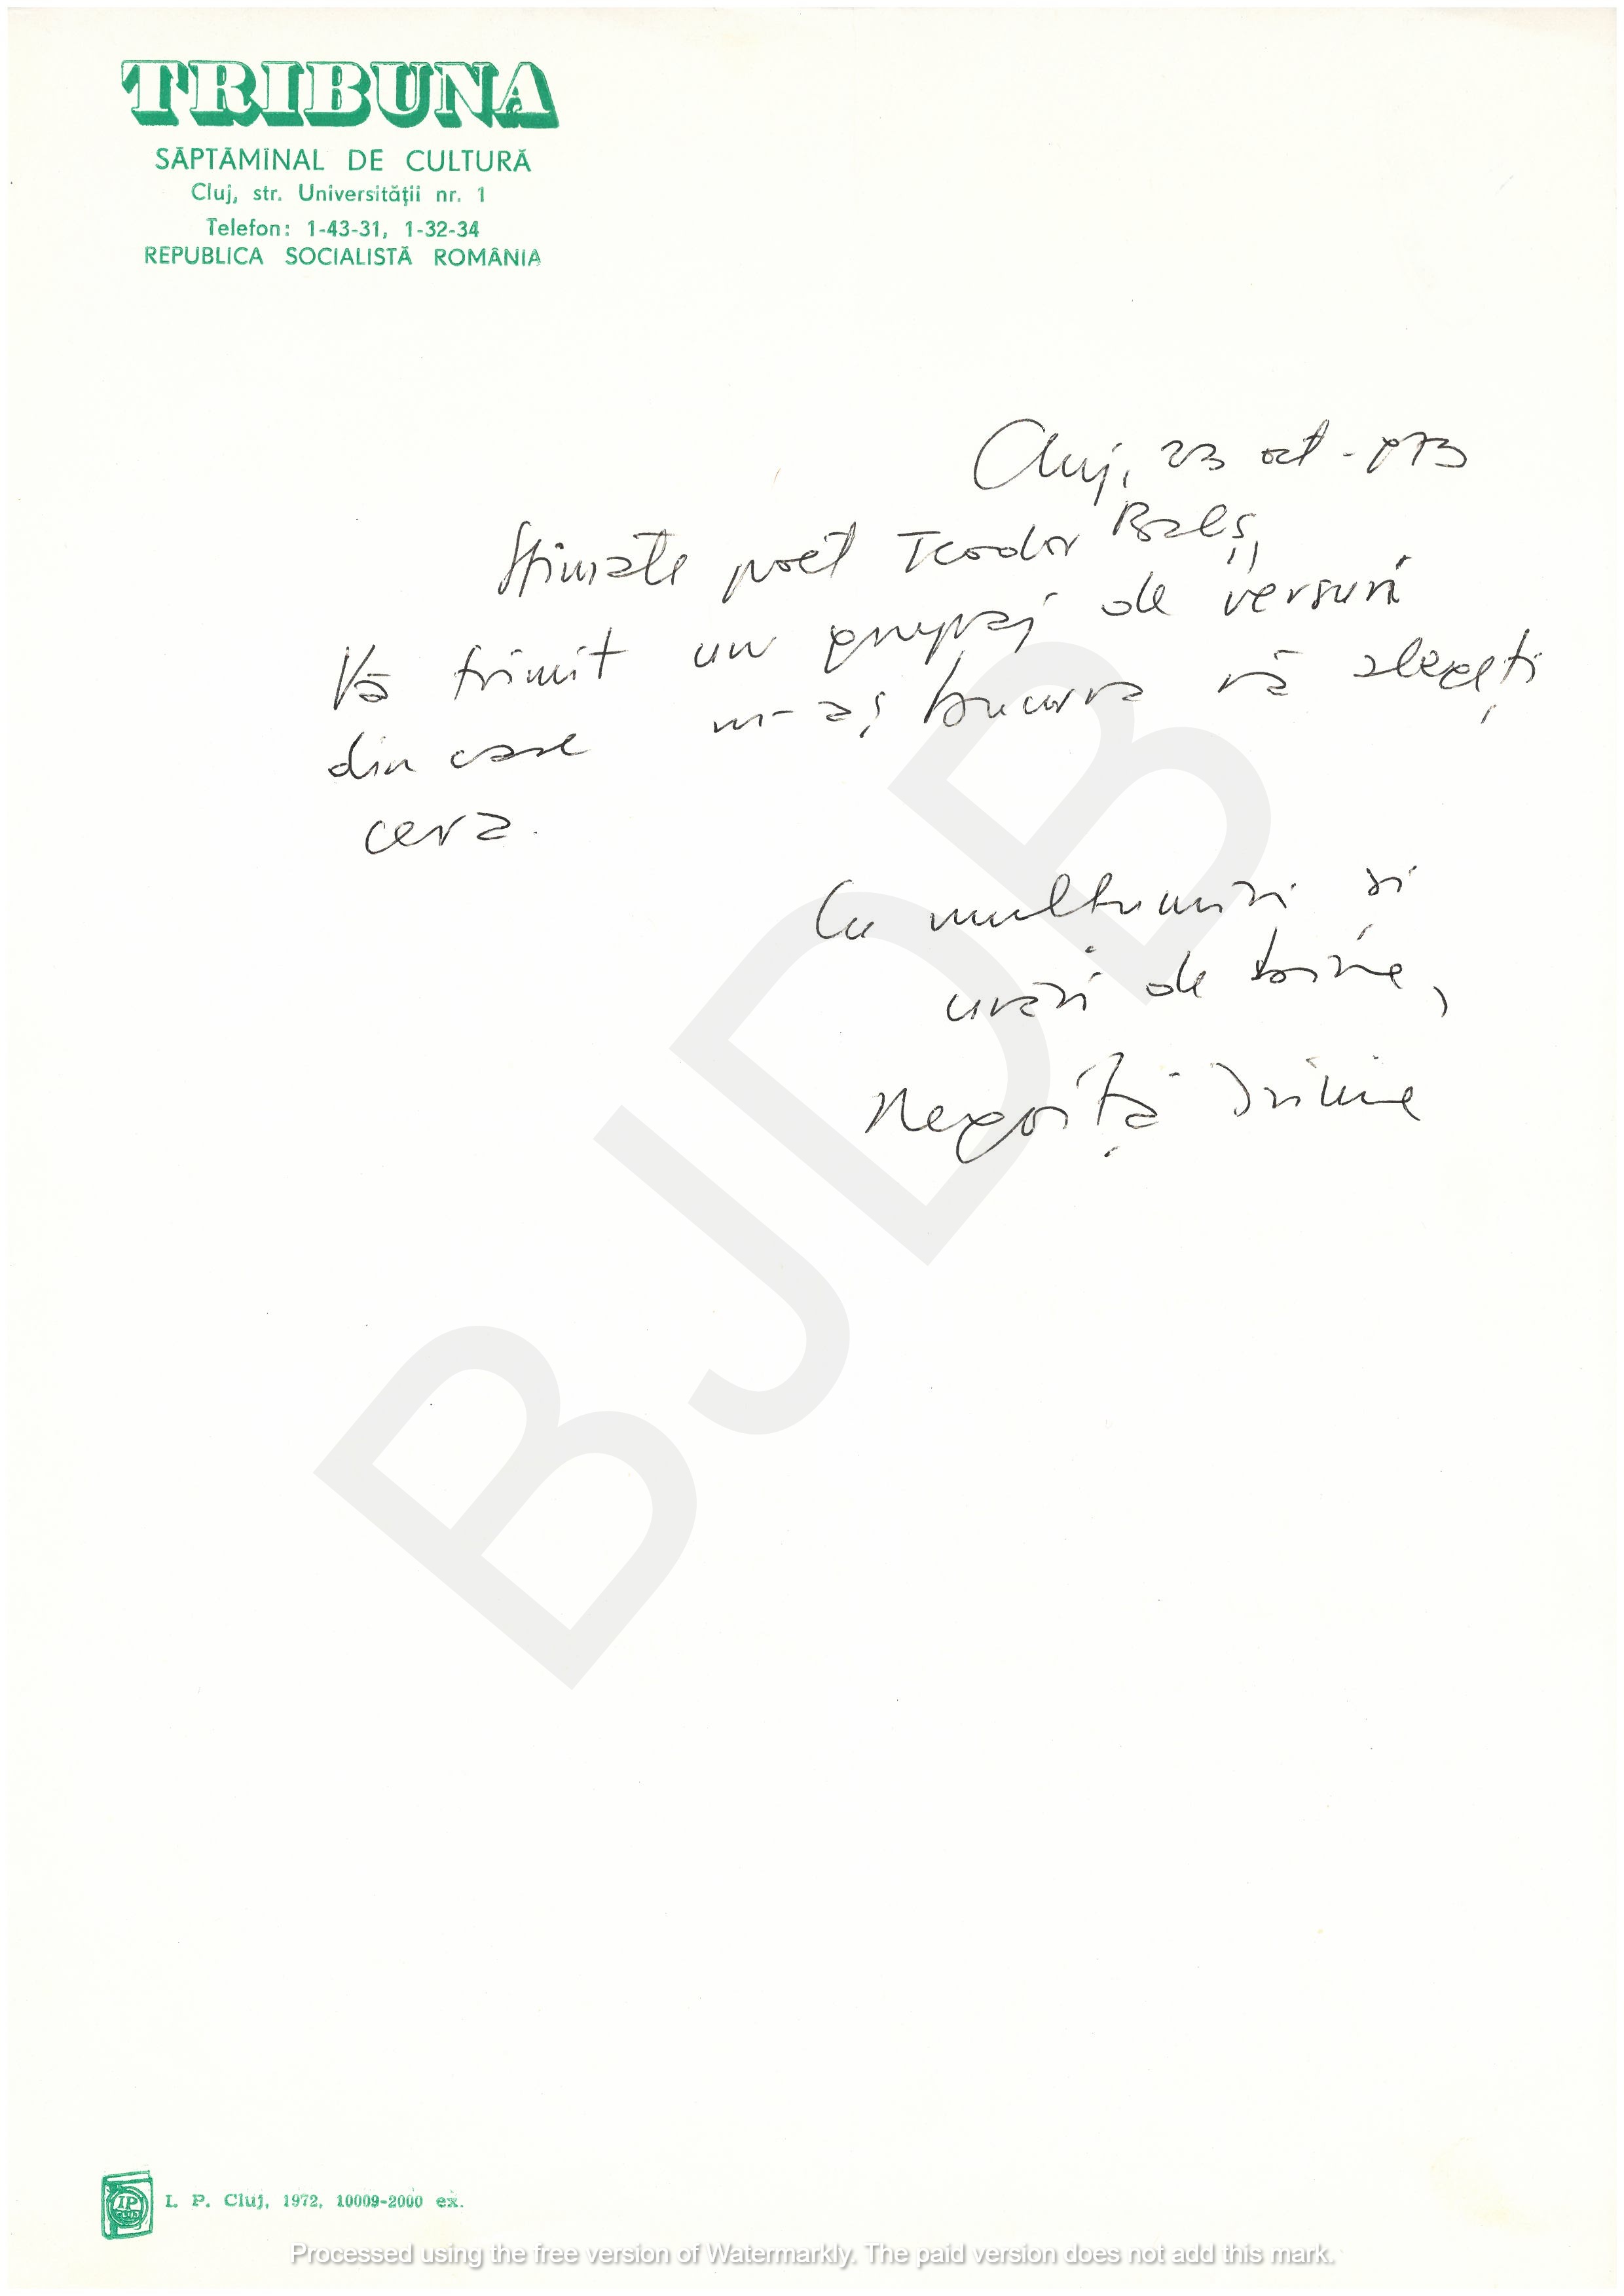 TRIBUNA
SĂPTĂMÎNAL DE CULTURĂ
Cluj, str. Universității nr. 1
Telefon: 1-43-31, 1-32-34
REPUBLICA SOCIALISTĂ ROMÂNIA
Cluj, 23 oct - 973
Stimate poet Teodor Balș,
Vă trimit un grupaj de versuri
din care m-aș bucura să alegeți
ceva.
Cu mulțumiri și
urări de bine,
Negoiță Irimie
BJDB
I. P. Cluj, 1972, 10009-2000 ex.
Processed using the free version of Watermarkly. The paid version does not add this mark.